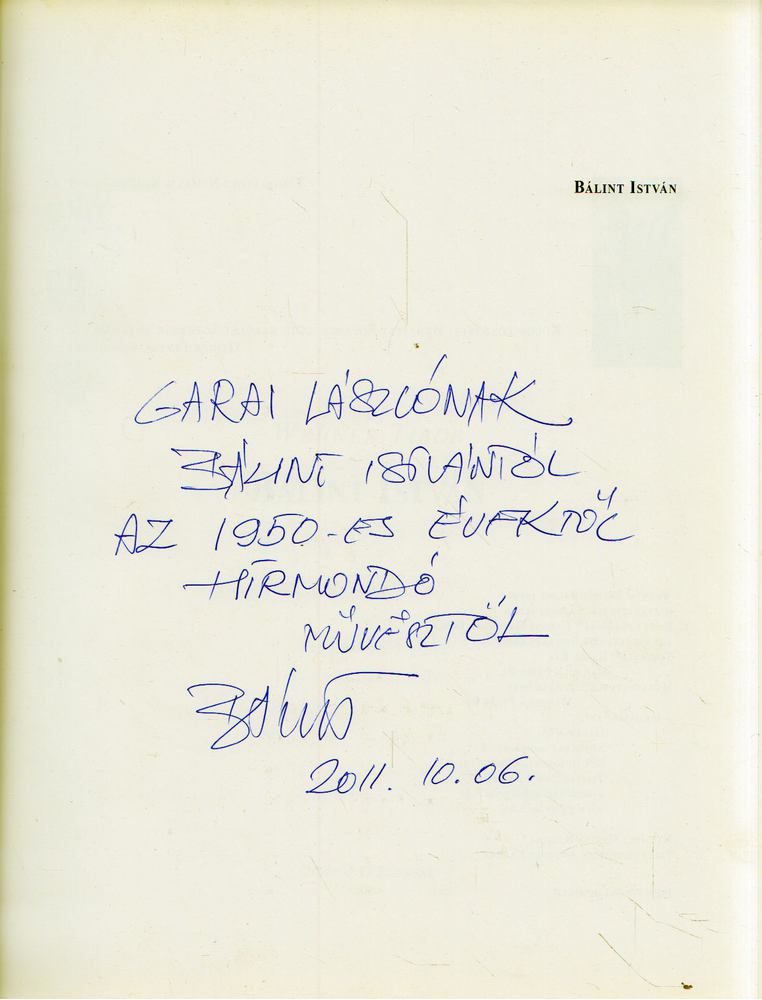 BÁLINT ISTVÁN
GARAI LÁSZLÓNAK
BÁLINT ISTVÁNTÓL
AZ 1950-ES ÉVEKTŐL
HÍRMONDÓ
MŰVÉSZTŐL
Bálint
2011. 10. 06.